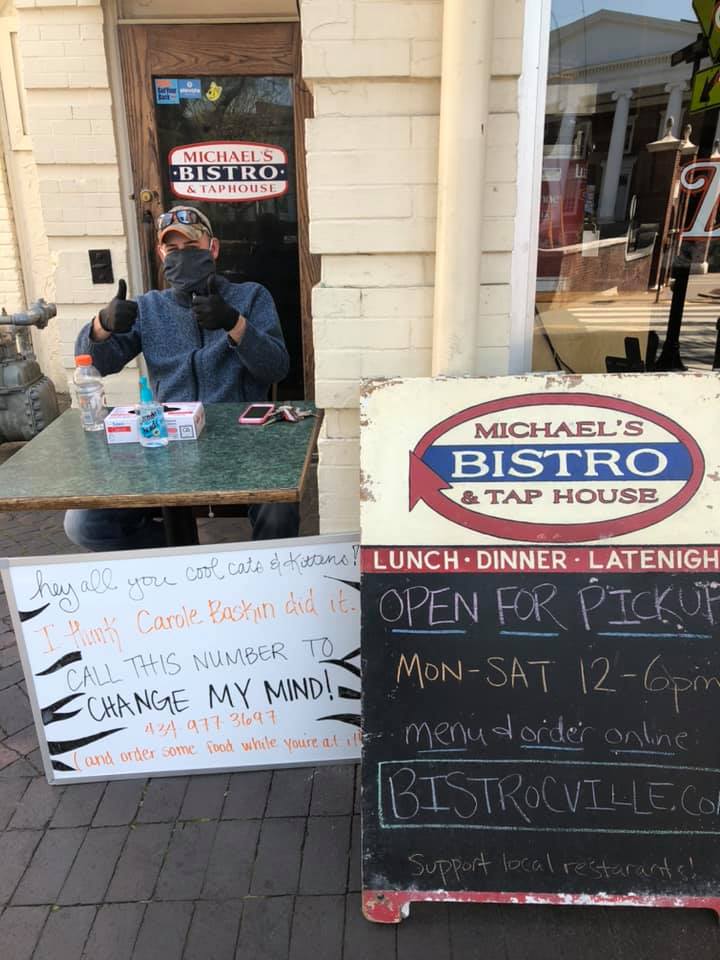 MICHAEL'S
BISTRO
& TAPHOUSE
hey all you cool cats & kittens!
I think Carole Baskin did it.
CALL THIS NUMBER TO
CHANGE MY MIND!
434 977 3697
(and order some food while youre at it
MICHAEL'S
BISTRO
& TAP HOUSE
LUNCH · DINNER · LATENIGH
OPEN FOR PICKUP
MON-SAT 12-6pm
menu & order online
BISTROCVILLE.CO
Support local restarants!